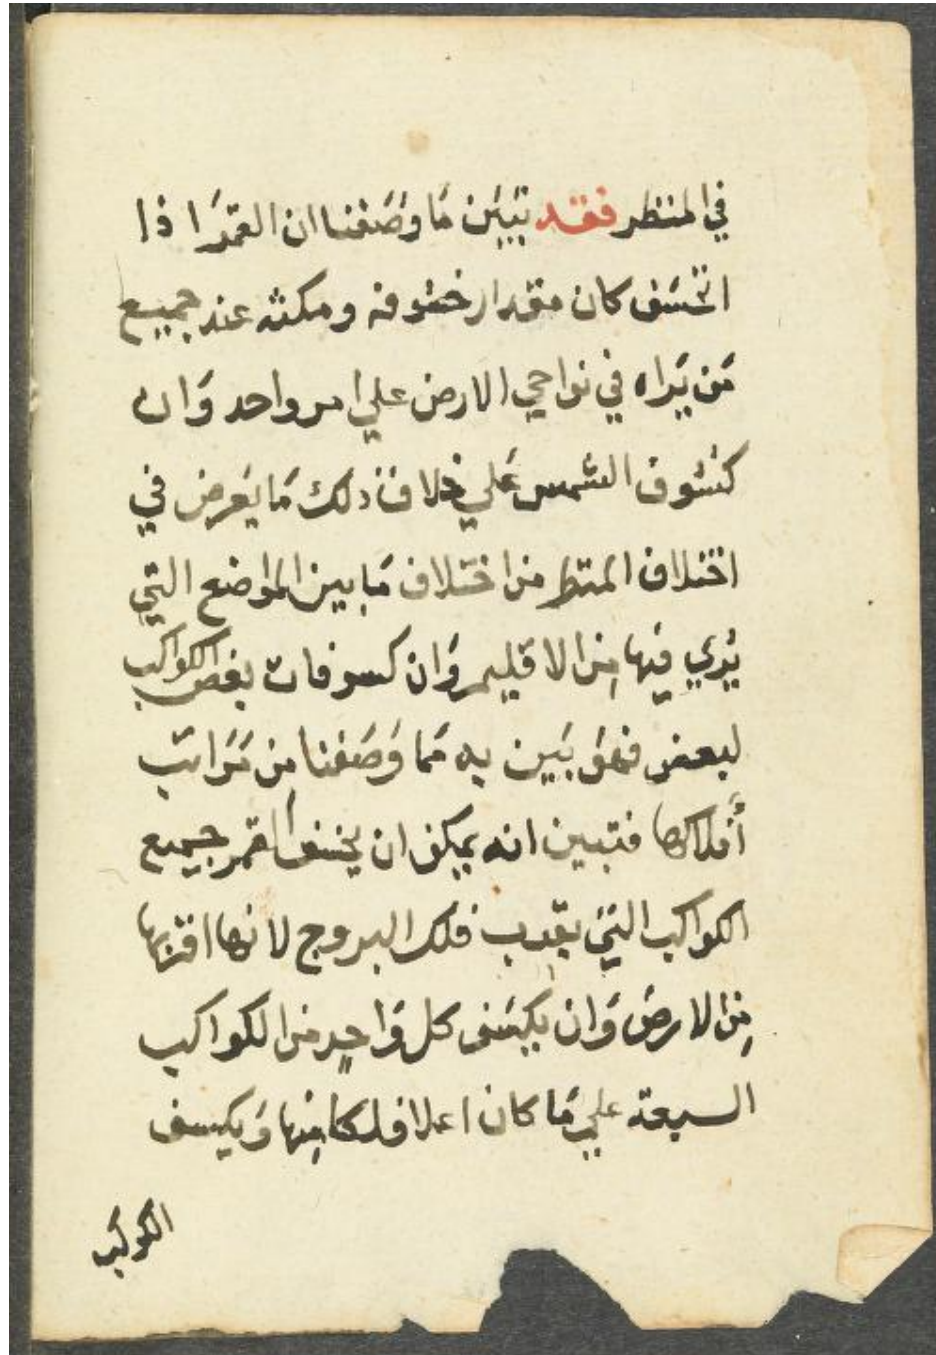 في المنظر فقد تبين مَا وصَفنا ان القمَرَ ا ذا
انخسَف كان مقدار خسُوفه ومكثه عند جميع
مَن يَراه في نواحي الارض علي امر واحد وَان
كسُوف الشمس عَلي خلاف ذلك مَا يعَرض في
اختلاف المنظر من اختلاف مَا بين المواضع التي
يُري فيَها مِن الاقليم وَان كسوفات بعَض الكواكب
لبعض فهوَ بَين به مَما وَصَفنا مِن مَرَاتب
أفلاكها فتبين انه يمكن ان يخسف القمر جميع
الكواكب التي بقرب فلك البروج لانها اقربها
مِن الارضَ وَان يكسَف كل وَاحِد من الكواكب
السبعة علي مَا كان اعلا فلكا مِنها وَيكسف
الكوكب